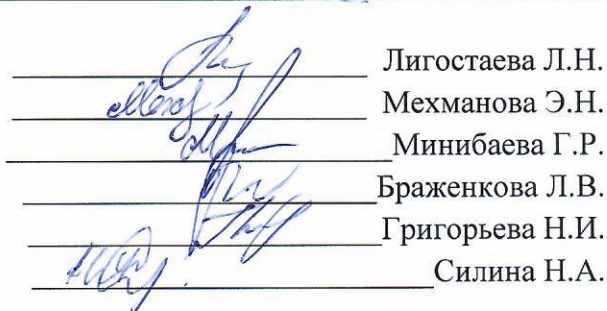 Лигостаева Л.Н.
Мехманова Э.Н.
Минибаева Г.Р.
Браженкова Л.В.
Григорьева Н.И.
Силина Н.А.